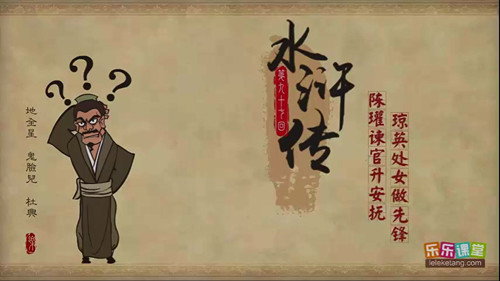 ? ? ?
地全星 鬼臉兒 杜興
水浒传
第九十七回
陈瓘谏官升安抚
琼英处女做先锋
乐乐课堂
leleketang.com